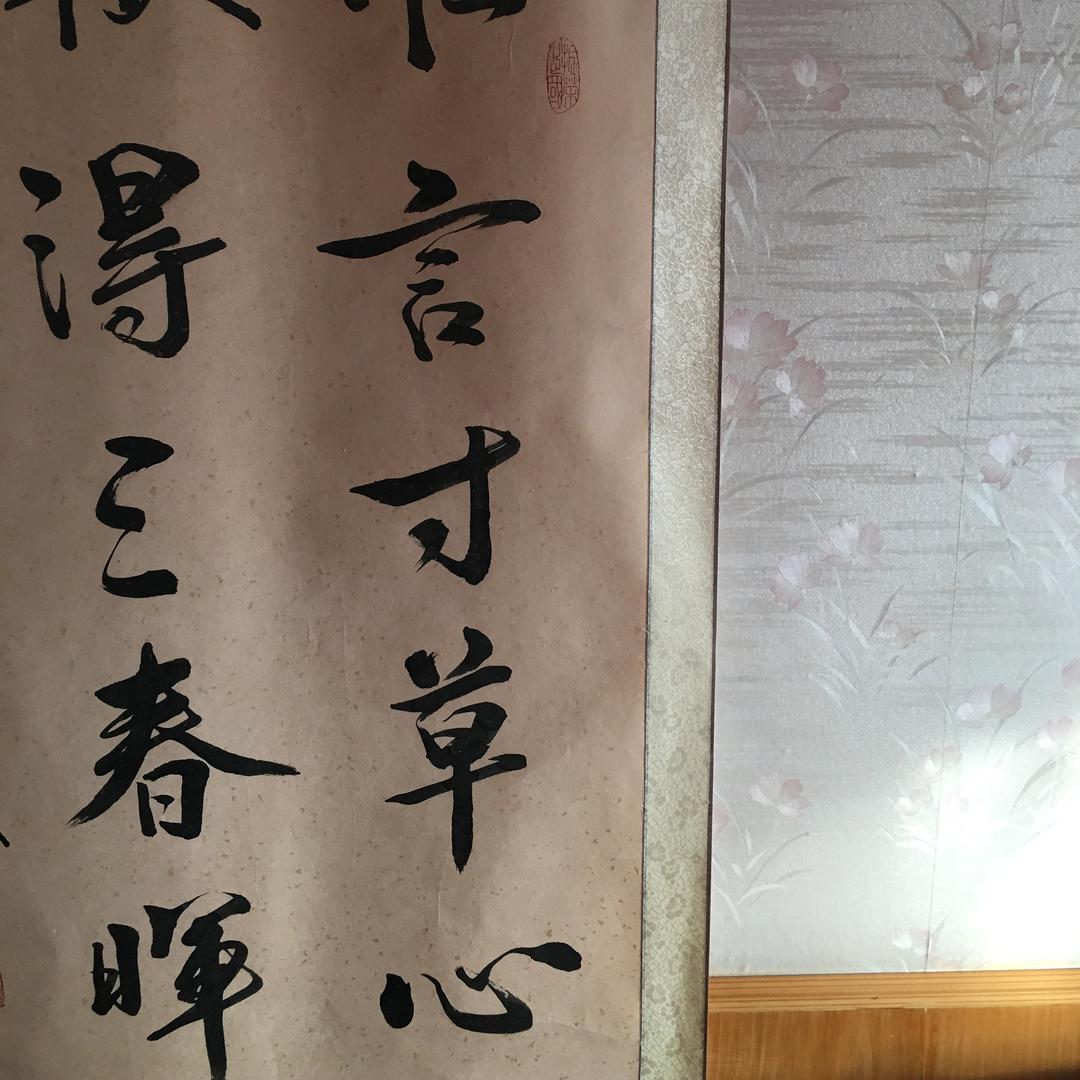 言寸草心
得三春暉